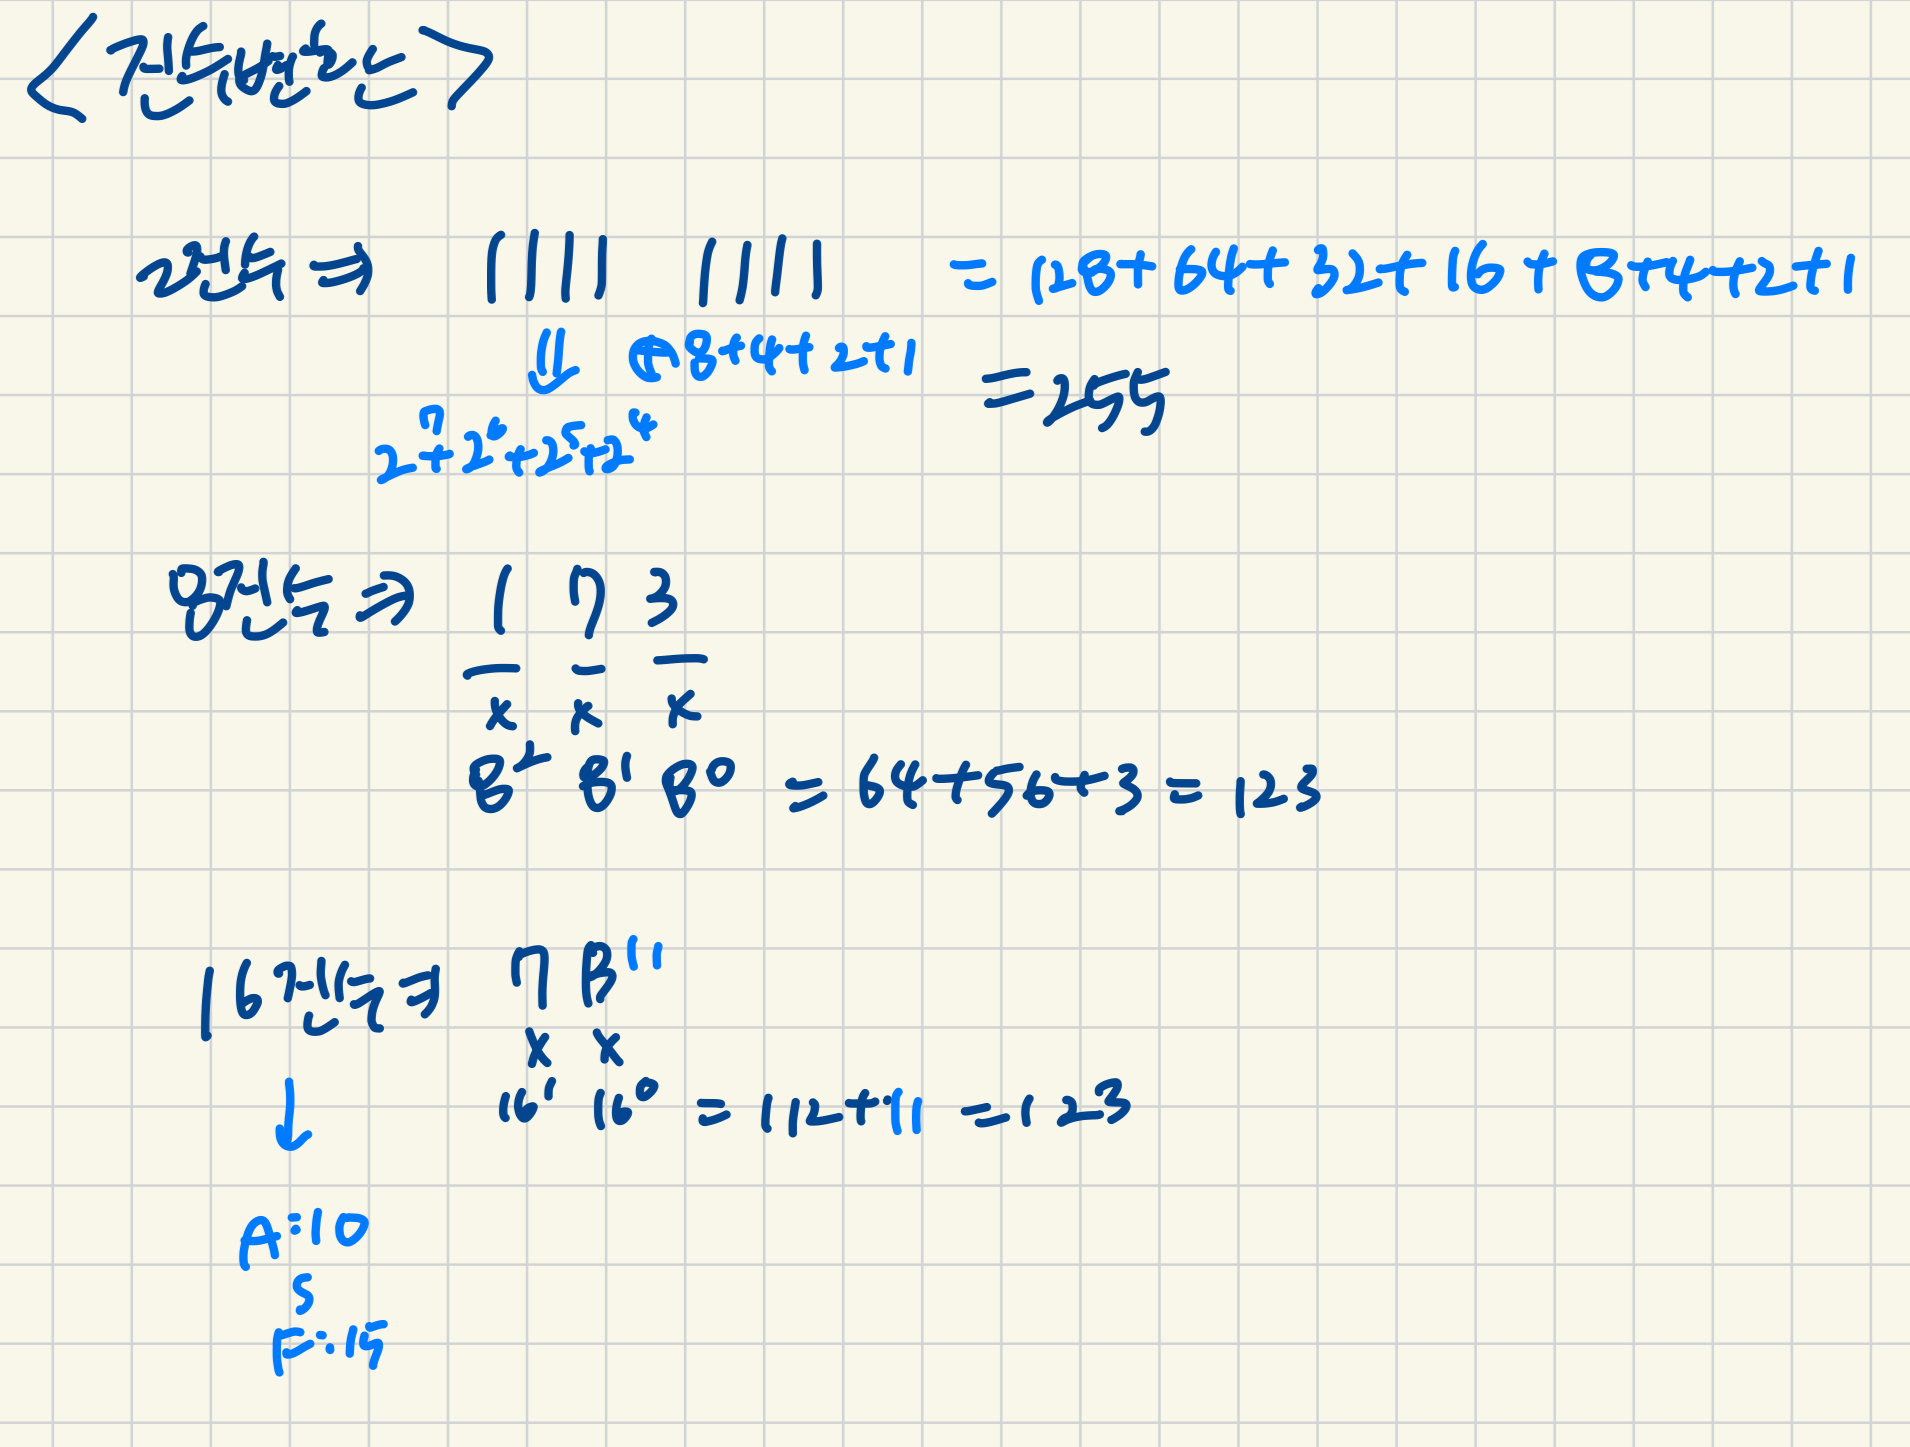 <진수변환>
2진수 ⇒ 1111 1111 = 128+64+32+16+8+4+2+1
⇓ 8+4+2+1
2⁷+2⁶+2⁵+2⁴
=255
8진수 ⇒ 1 7 3
x x x
8² 8¹ 8⁰ = 64+56+3=123
16진수 ⇒ 7 B 11
x x
16¹ 16⁰ = 112+11 =123
↓
A:10
S
F:15